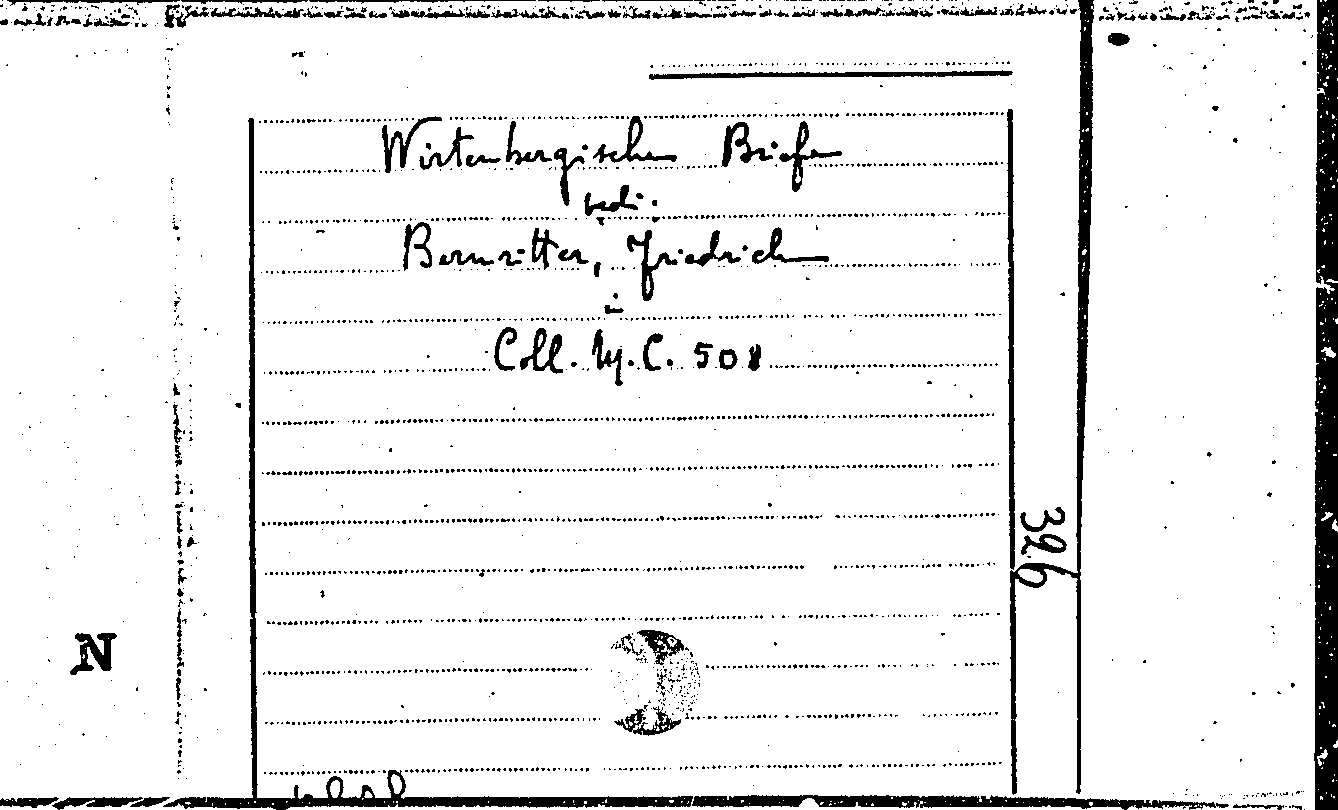 Wirtenbergischen Briefe
vedi:
Bernritter, Friedrich
in
Coll. M. C. 508
326
N